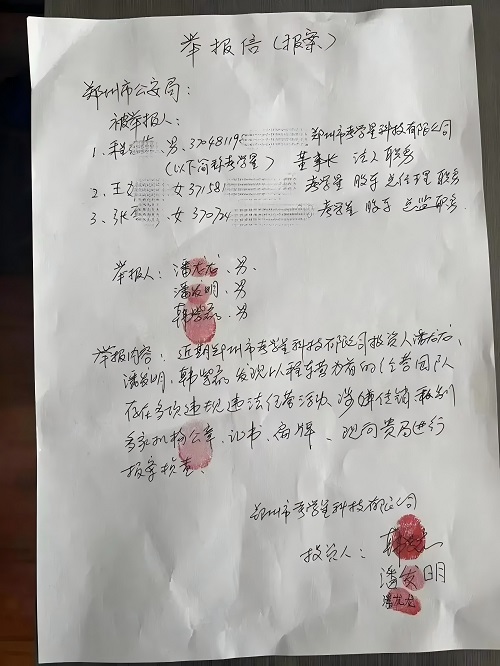 举报信（报案）
郑州市公安局：
被举报人：
1、程 、男、37048119 郑州市考学星科技有限公司
（以下简称考学星） 董事长 法人 职务
2、王 、女 371581 考学星 股东 总经理 职务
3、张 、女 370724 考学星 股东 总监 职务
举报人：潘龙龙、男、
潘发明、男
韩 、男
举报内容：近期郑州市考学星科技有限公司投资人潘龙龙、
潘发明、韩 发现以程 为首的经营团队
存在多项违规违法经营活动、涉嫌传销、私刻
多家机构公章、证书、匾牌、现向贵局进行
报案侦查、
郑州市考学星科技有限公司
投资人：韩
潘发明
潘龙龙